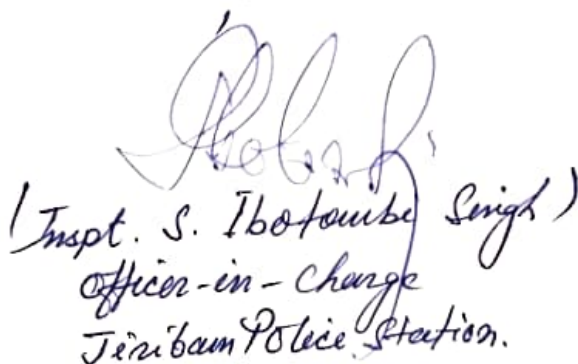 (Inspt. S. Ibotombi Singh)
Officer-in-Charge
Jiribam Police Station.